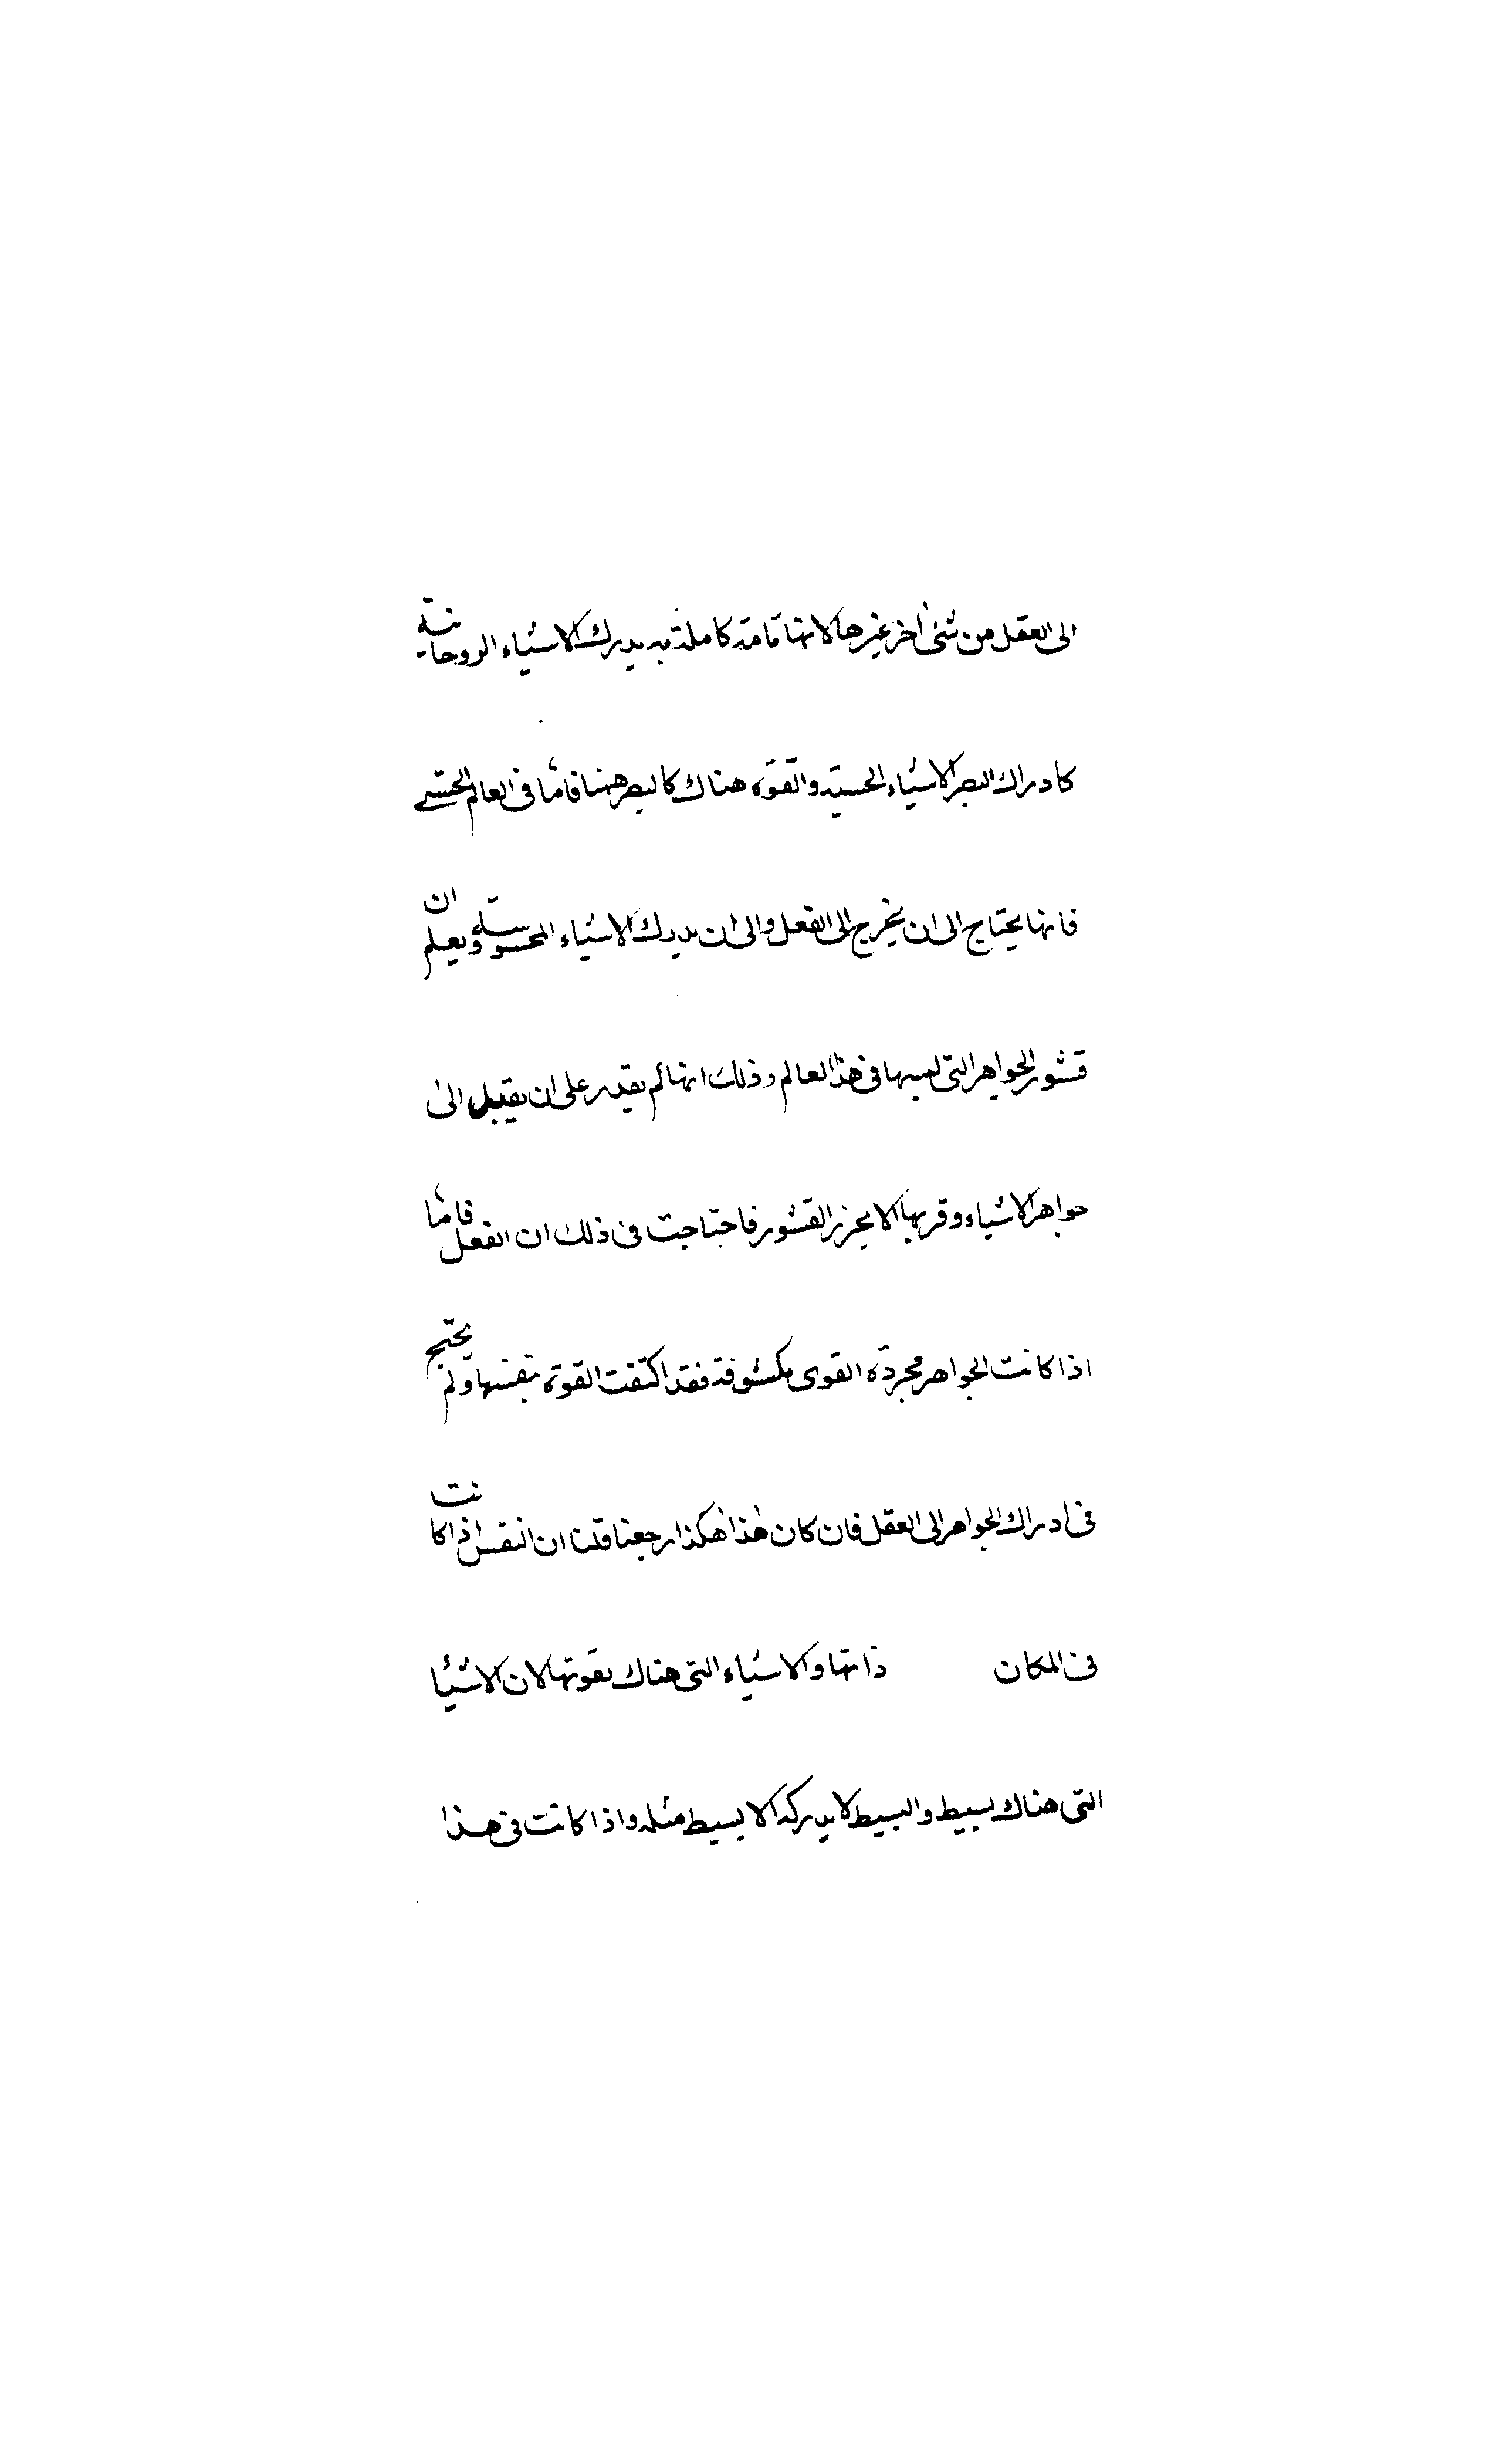 الى العقل من شئ اخر غيرها لانها تامة كاملة به يدرك الاشياء الروحانية
كادراك البصر الاشياء الحسية والقوة هناك كالبصر ههنا فاما فى العالم الحسى
فانها يحتاج الى ان يخرج الى الفعل والى ان يدرك الاشياء المحسوسة ويعلم ان
قشور الجواهر التى لبسها فى هذا العالم وذلك انها لم يقدر على ان يقبل الى
جواهر الاشياء وقربها الا بحرز القشور فاحتاجت فى ذلك ان الفعل فاما
اذا كانت الجواهر مجردة القوى مكشوفة فقد اكتفت القوة بنفسها ولم يحتج
فى ادراك الجواهر الى العقل فان كان هذا هكذا رجعنا قلنا ان النفس اذا كانت
فى المكان ذاتها والاشياء التى هناك بقوتها لان الاشيا
التى هناك بسيط والبسيط لا يدركه الا بسيط مثله واذا كانت فى هذا